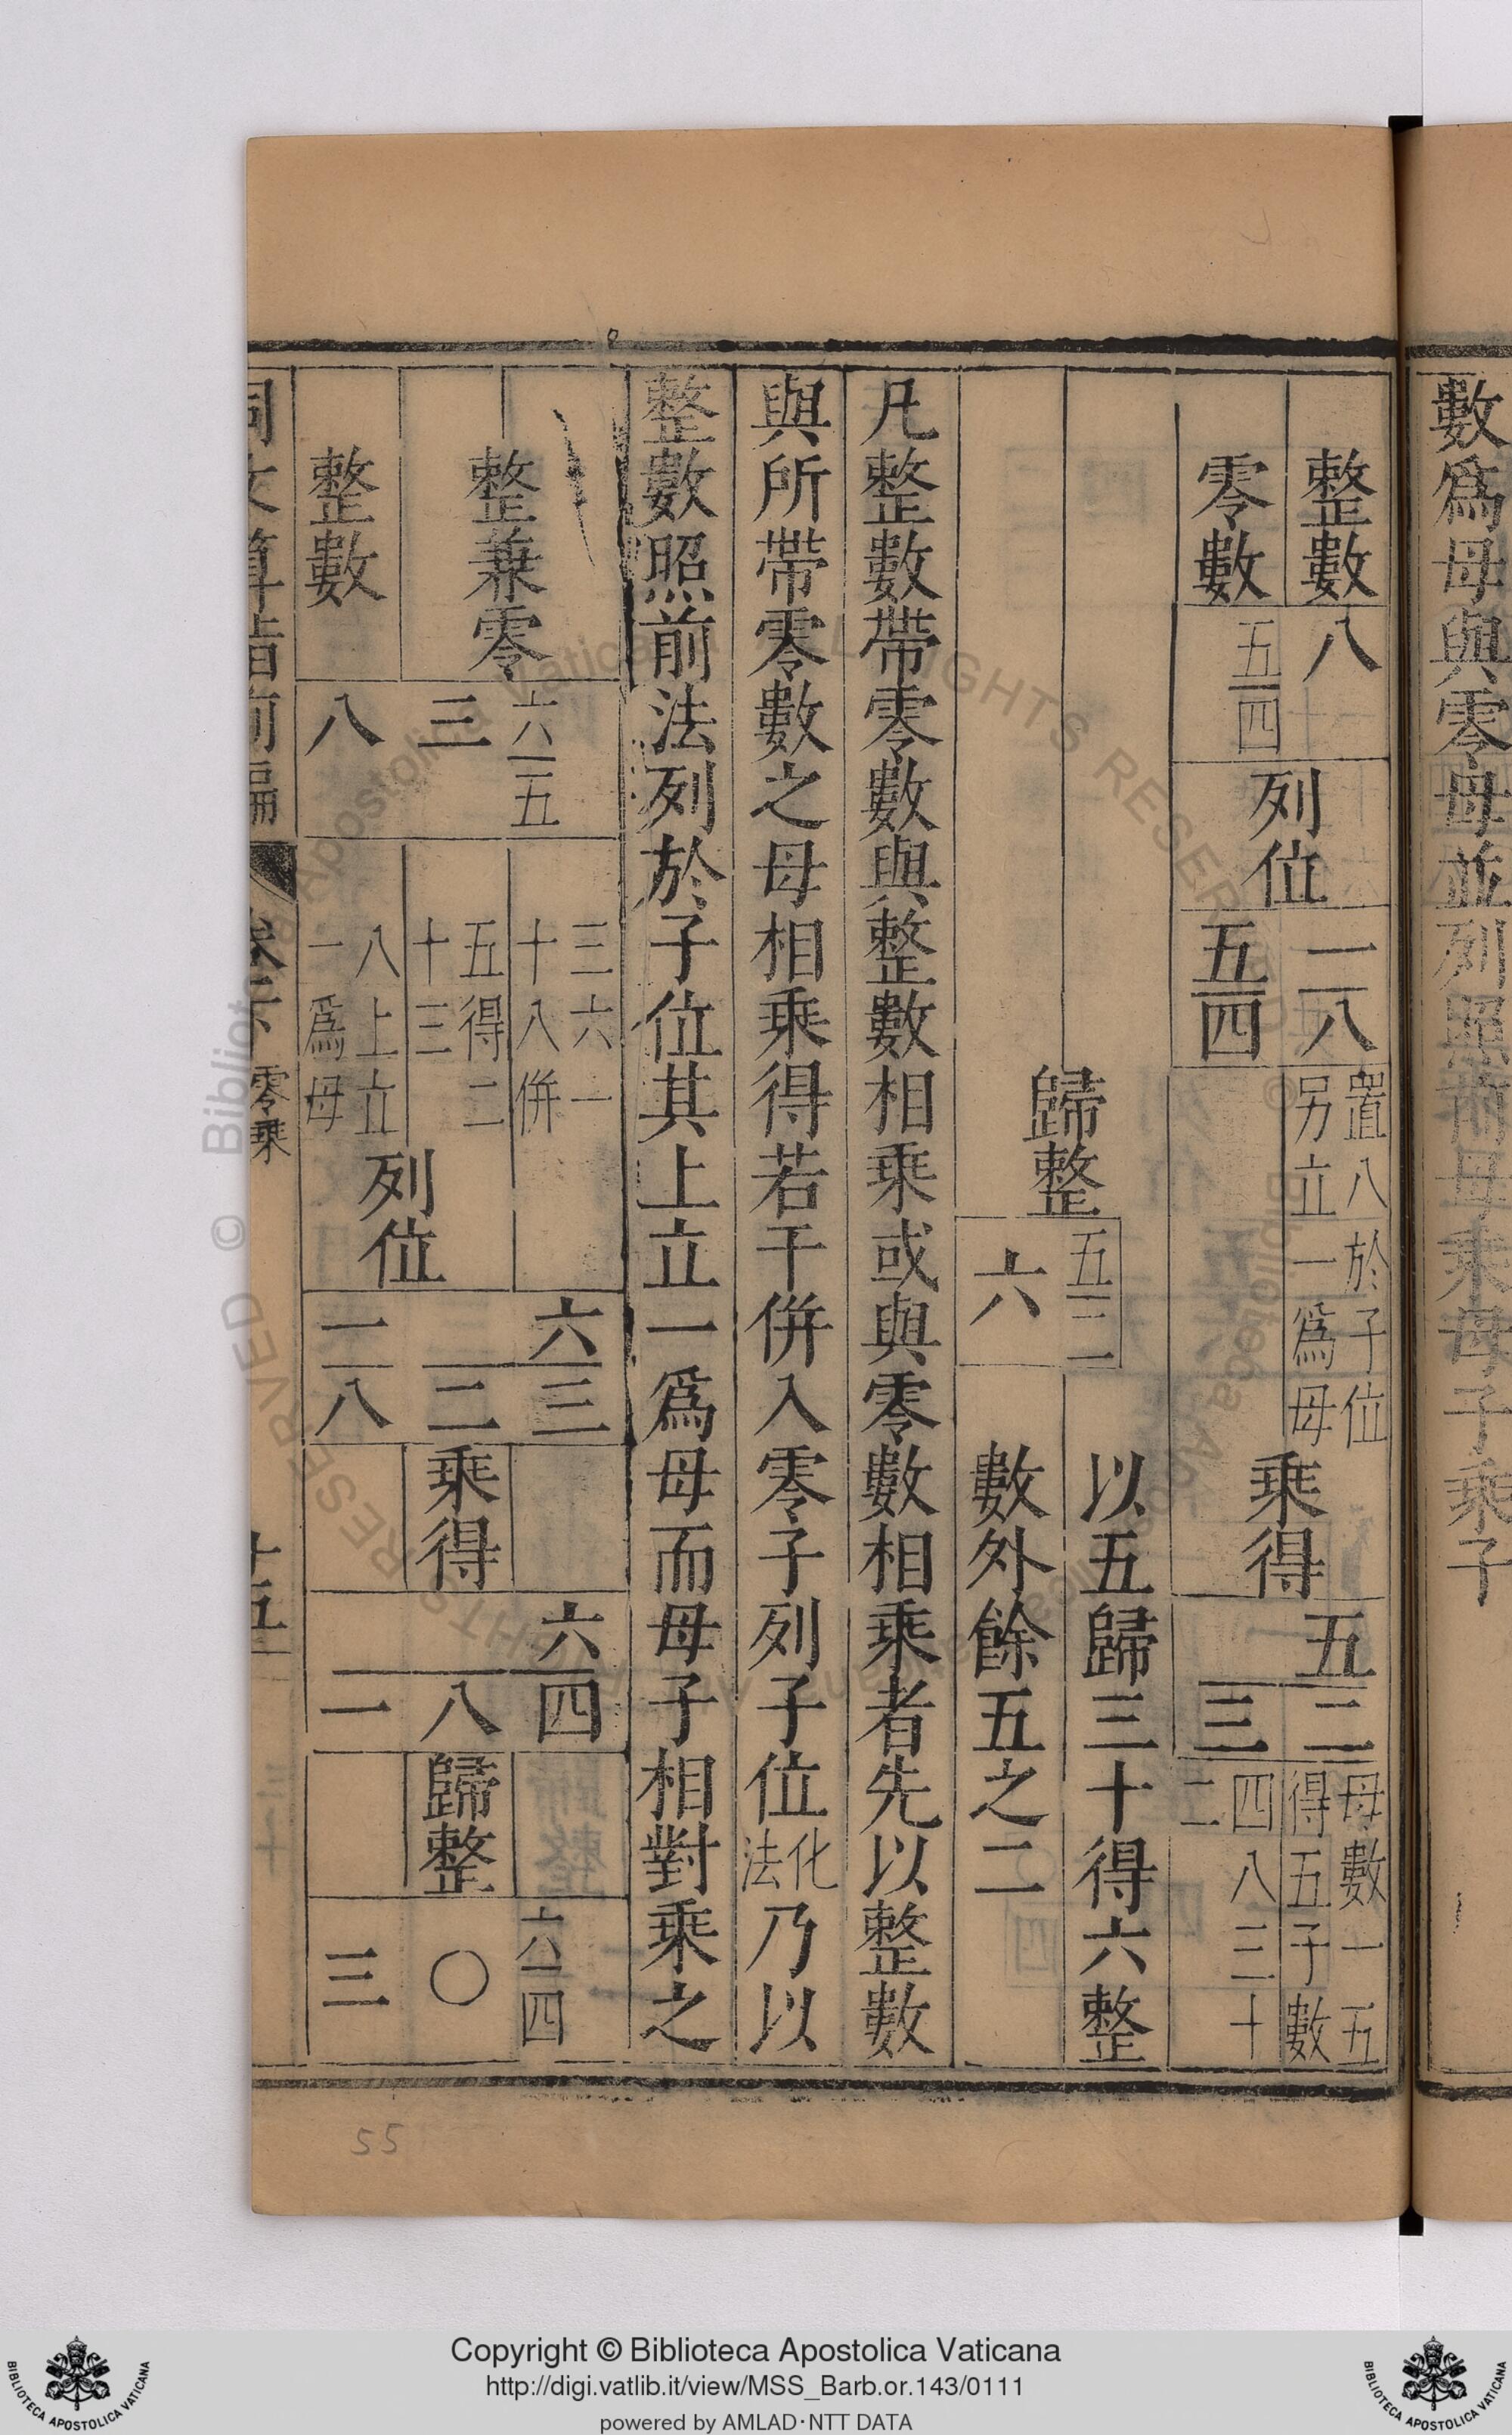 數爲母與零母並列照前母乘母子乘子
整數 八 列位 一 八 置八於子位另立一爲母 乘得 五 三二 母數一五得五子數四八三十二
零數 五 四 五 四
歸整 六 五 二
以五歸三十得六整
數外餘五之二
凡整數帶零數與整數相乘或與零數相乘者先以整數
與所帶零數之母相乘得若干併入零子列子位化法乃以
整數照前法列於子位其上立一爲母而母子相對乘之
整兼零 三 六 五 三六一十八併五得二十三 列位 六 二三 乘得 六 一八四 歸整 三〇 六 四
整數 八 八上立一爲母 一 八
同文算指前編 卷下 零乘 十五
55
Copyright © Biblioteca Apostolica Vaticana
http://digi.vatlib.it/view/MSS_Barb.or.143/0111
powered by AMLAD·NTT DATA
BIBLIOTECA APOSTOLICA VATICANA
BIBLIOTECA APOSTOLICA VATICANA